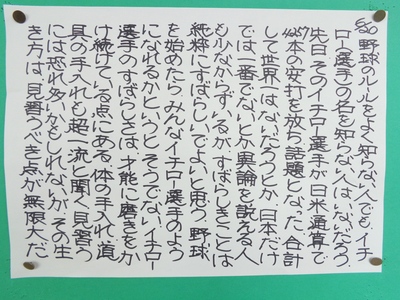 野球のルールをよく知らない人でも、イチ
ロー選手の名を知らない人はいないだろう、
先日、そのイチロー選手が日米通算で
4257本の安打を放ち話題となった。合計
して世界一はないだろうとか、日本だけ
では一番でないとか異論を説える人
も少なからずいるが、すばらしきことは
純粋にすばらしいでよいと思う。野球
を始めたら、みんなイチロー選手のよう
になれるかというと、そうでない。イチロー
選手のすばらしさは、才能に磨きをか
け続けている点にある。体の手入れ、道
具の手入れも超一流と聞く。見習う
には恐れ多いかもしれないが、その生
き方は、見習うべき点が無限大だ